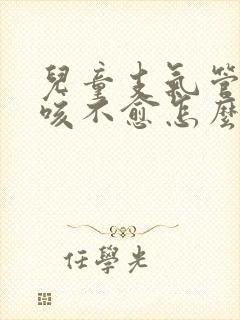 兒童支氣管
咳不愈怎麼
任學光